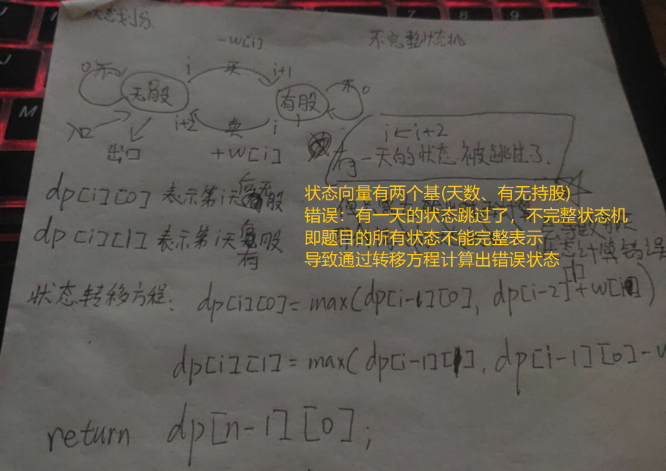 状态划分
不完整状态机
-w[i]
0 不 i 买 i+1 不 0
无股 有股
入口 i+2 卖 i
出口 +w[i]
i ← i+2
有一天的状态被跳过了
dp[i][0] 表示第i天 股
dp[i][1] 表示第i天 有股
状态向量有两个基(天数、有无持股)
错误：有一天的状态跳过了，不完整状态机
即题目的所有状态不能完整表示
导致通过转移方程计算出错误状态
状态转移方程: dp[i][0]=max(dp[i-1][0], dp[i-2][1]+w[i])
dp[i][1]=max(dp[i-1][1], dp[i-1][0]-
return dp[n-1][0];